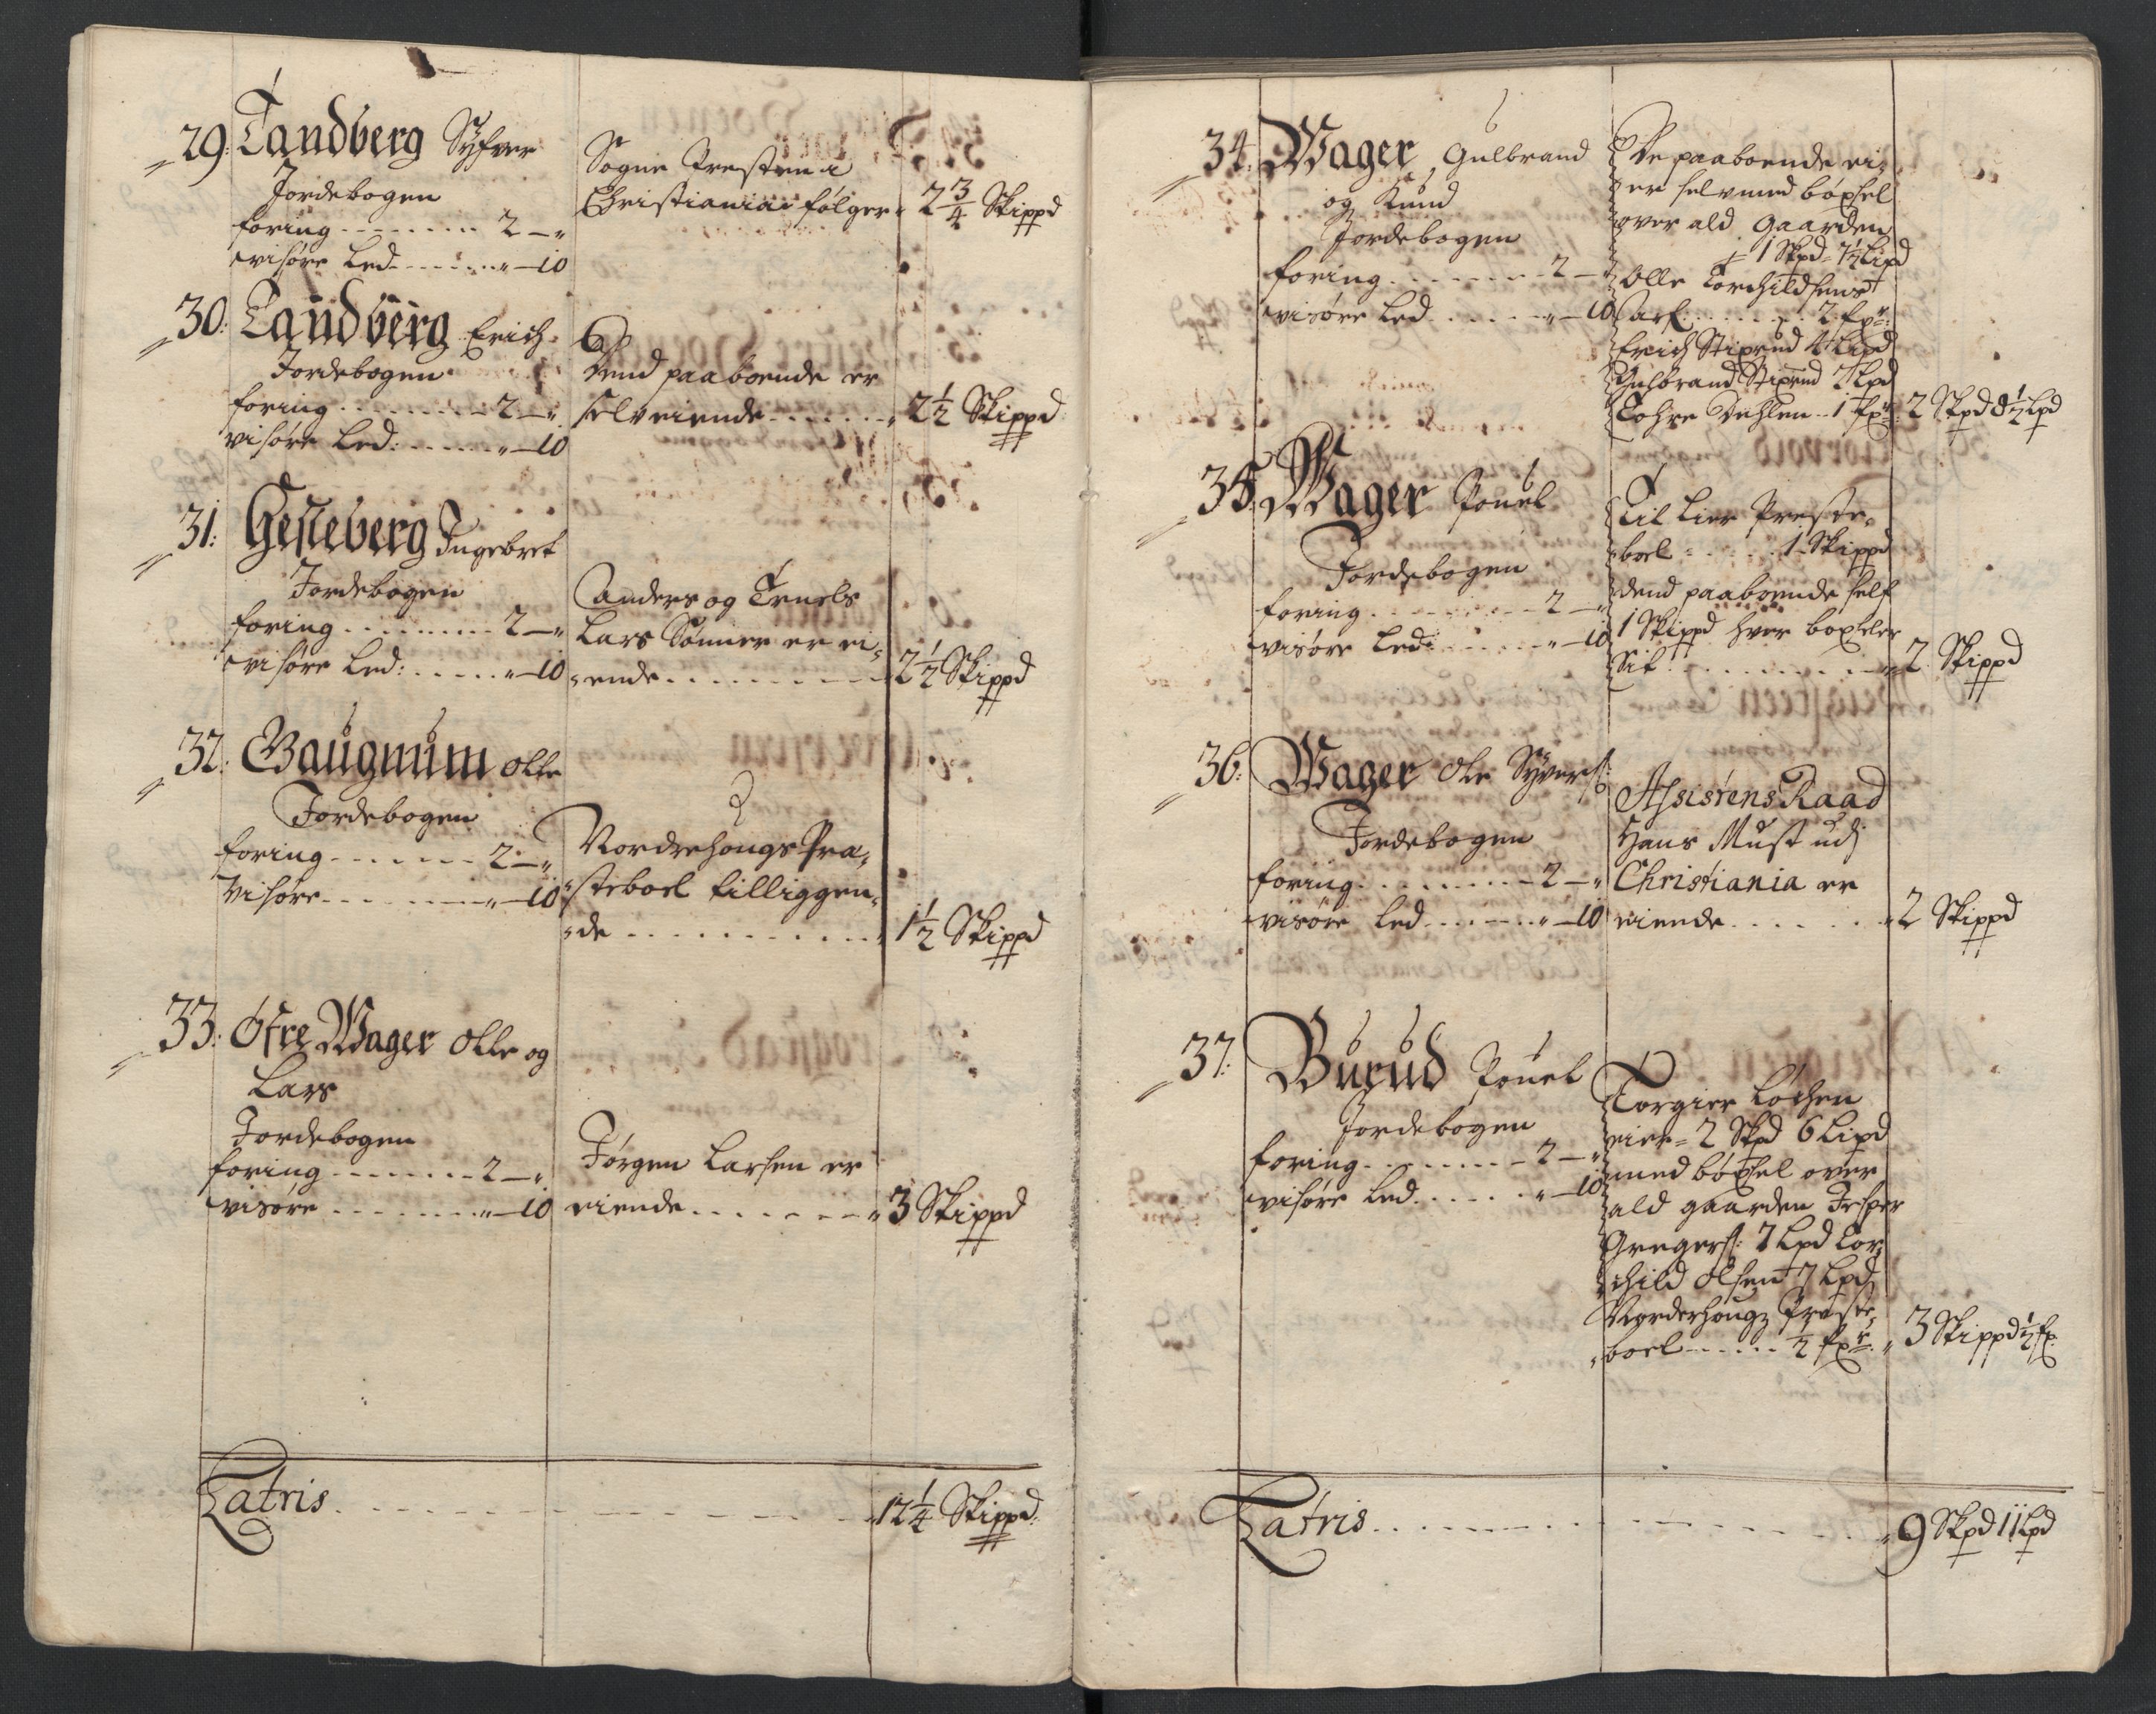 29: Tandberg Syfver
Jordebogen
foring - - - - - - - - 2 – "
visøre Led - - - - - - " – 10
Sogne Presten i
Christiania følger " 2 3/4 Skippd
30: Tandberg Erich
Jordebogen
foring - - - - - - - - 2 – "
visøre Led: - - - - - " – 10
Dend paaboende er
selveiende - - - - - - " 2 1/2 Skippd
31: Gesseberg Ingebret
Jordebogen
foring . . . . . . . . . 2 – "
visøre Led: . . . . . " – 10
Anders og Truels
Lars Sønner er ei-
ende . . . . . . . . . . 2 1/2 Skippd
32: Gaugnum Olle
Jordebogen
foring - - - - - - - 2 – "
Visøre - - - - - - - " – 10
Nordrehougs Præ-
steboel tilliggen-
de - - - - - - - - - - " 1 1/2 Skippd
33: Øfre Wager Olle og
Lars
Jordebogen
foring - - - - - - - 2 – "
visøre - - - - - - - " – 10
Jørgen Larsen er
eiende - - - - - - - - " 3 Skippd
Latris - - - - - - - - - - - " 12 1/4 Skippd:
34: Wager, Gulbrand
og Knud
Jordebogen
foring . . . . . . . . 2 – "
visøre Led . . . . . " – 10
De paaboende ei-
er selv med böxsel
over ald Gaarden
1 Skpd = 7 1/2 Lipd
Olle Torchildsens
arf: . . . . . . 2 fxr:
Erich Stixrud 4 Lipd
Gulbrand Stixrud 2 Lpd
Tohre Dehlen - 1 fxr: 2 Skpd 8 1/2 Lpd
35: Wager Pouel
Jordebogen
foring . . . . . . . . 2 – "
visøre Led: . . . . . " – 10
Til Lier Preste-
boel - - - - - 1 Skippd
dend paaboende self
1 Skippd hver boxseler
Sit . . . . . . . . . . " 2 Skippd
36: Wager Ole Syvers:
Jordebogen
foring . . . . . . . . 2 – "
visøre Led . . . . . " – 10
Assisørens Raad
Hans Must udj
Christiania er
eiende . . . . . . . " 2 Skippd
37: Burud Pouel
Jordebogen
foring . . . . . . . . 2 – "
visøre Led . . . . . " – 10
Torgier Løchen
eier = 2 Skpd 6 Lipd
med böxsel over
ald gaarden Jesper
Gregers: 7 Lpd Tor-
child Olsen 7 Lpd
Norderhougs Preste-
boel - - - - - 1/2 fxr: " 3 Skippd 1/2 fx:
Latris . . . . . . . . . . . . " 9 Skpd 11 Lpd